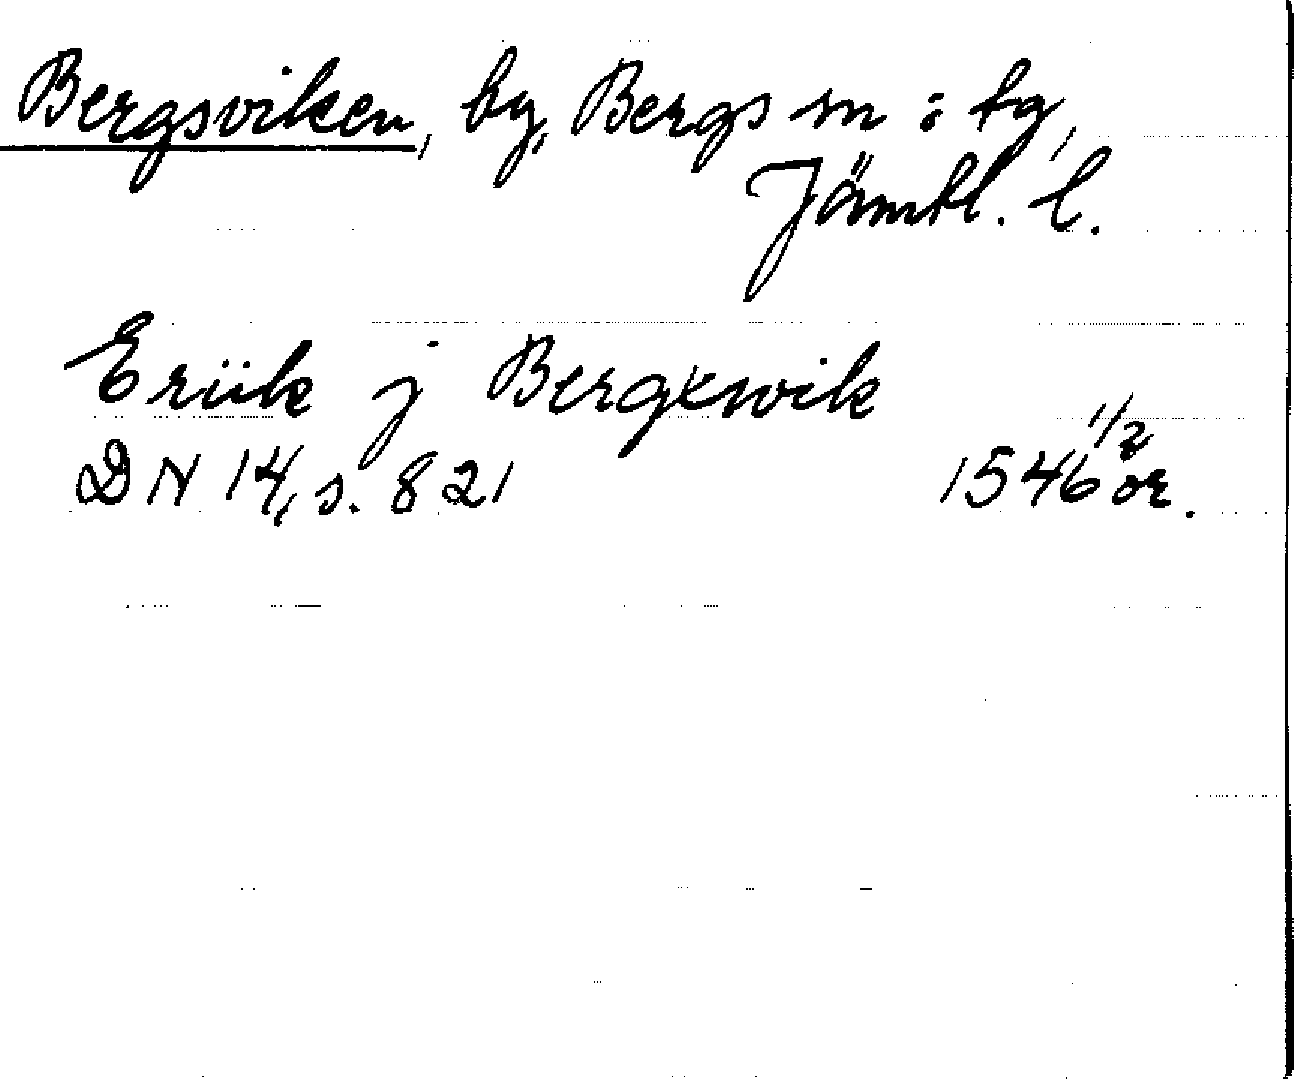 Bergsviken, by, Bergs sn o tg,
Jämtl. l.
Eriik j Bergxwik
DN 14, s. 821 1546 1/2 or.